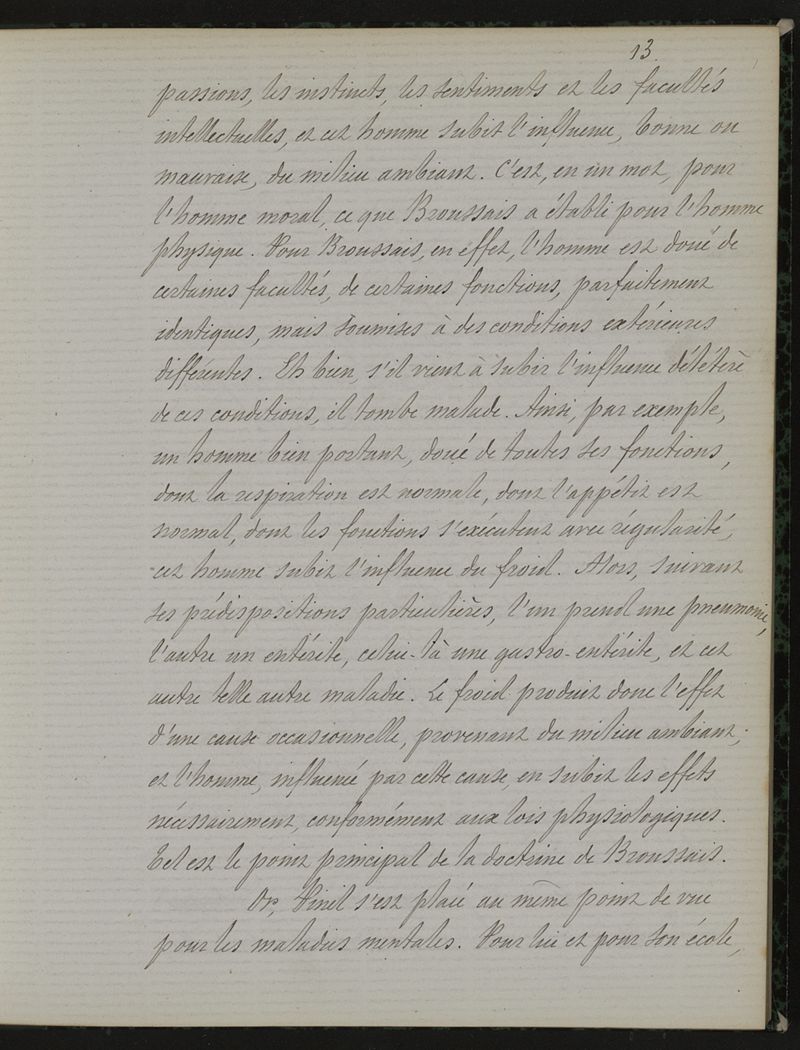 13
passions, les instincts, les sentiments et les facultés
intellectuelles, et cet homme subit l'influence, bonne ou
mauvaise, du milieu ambiant. C'est, en un mot, pour
l'homme moral, ce que Broussais a établi pour l'homme
physique. Pour Broussais, en effet, l'homme est doué de
certaines facultés, de certaines fonctions, parfaitement
identiques, mais soumises à des conditions extérieures
différentes. Eh bien, s'il vient à subir l'influence délétère
de ces conditions, il tombe malade. Ainsi, par exemple,
un homme bien portant, doué de toutes ses fonctions,
dont la respiration est normale, dont l'appétit est
normal, dont les fonctions s'exécutent avec régularité,
cet homme subit l'influence du froid. Alors, suivant
ses prédispositions particulières, l'un prend une pneumonie,
l'autre un entérite, celui-là une gastro-entérite, et cet
autre telle autre maladie. Le froid produit donc l'effet
d'une cause occasionnelle, provenant du milieu ambiant;
et l'homme, influencé par cette cause, en subit les effets
nécessairement, conformément aux lois physiologiques.
Tel est le point principal de la doctrine de Broussais.
Or, Pinel s'est placé au même point de vue
pour les maladies mentales. Pour lui et pour son école,